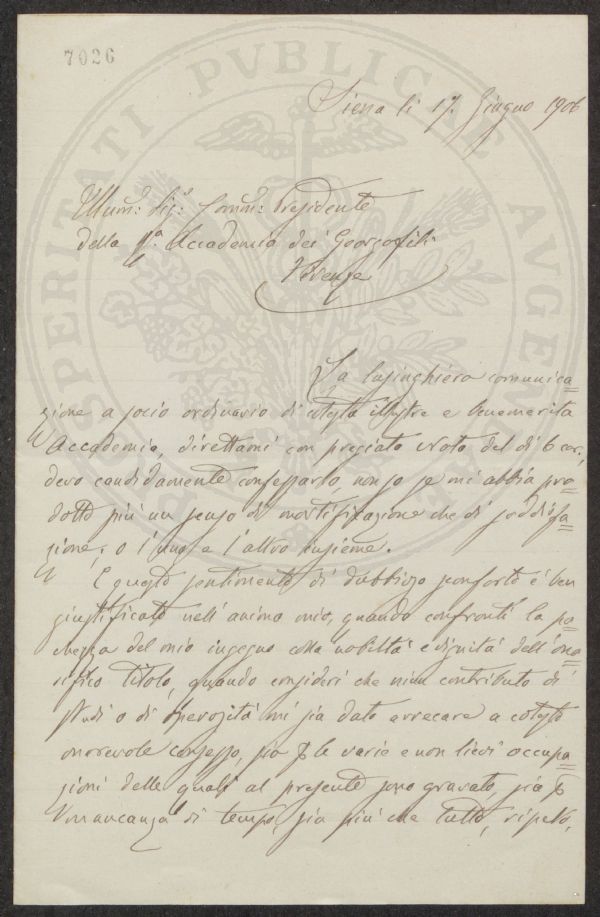 7026
PROSPERITATI PVBLICAE AVGENDAE
Siena li 17. Giugno 1906
Illum: Sig: Comm: Presidente
della R.a Accademia dei Georgofili
Firenze
La lusinghiera comunica=
zione a socio ordinario di cotesta illustre e benemerita
Accademia, direttami con pregiata Nota del dì 6 cor.,
devo candidamente confessarlo, non so se mi abbia pro=
dotto più un senso di mortificazione che di soddisfa=
zione, o l'uno e l'altro insieme.
E questo sentimento di dubbioso sconforto è ben
giustificato nell'animo mio, quando confronti la po=
chezza del mio ingegno colla nobiltà e dignità dell'ono=
rifico titolo, quando consideri che niun contributo di
studi o di operosità mi sia dato arrecare a cotesto
onorevole consesso, sia p le varie e non lievi occupa=
zioni delle quali al presente sono gravato, sia p
mancanza di tempo, sia più che tutto, ripeto,